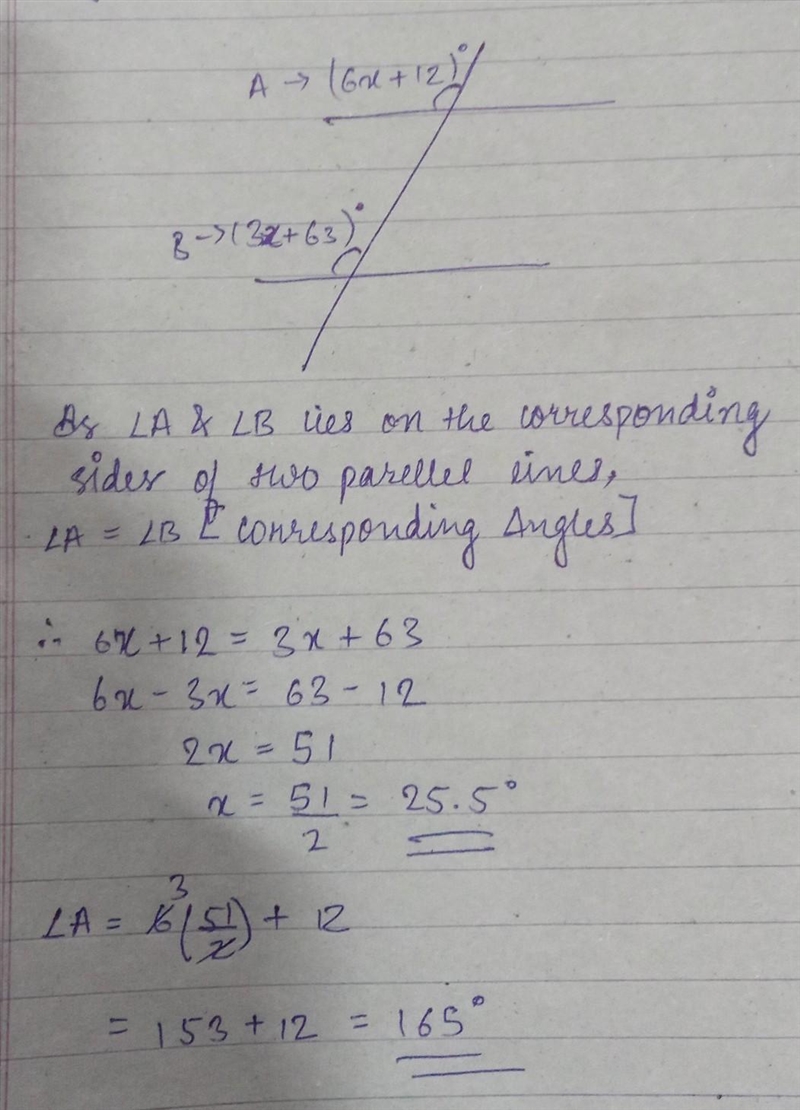 A → (6x+12)°
B → (3x+63)°
As ∠A & ∠B lies on the corresponding
sides of two parellel lines,
∠A = ∠B [ conrresponding Angles]
∴ 6x+12 = 3x+63
6x - 3x = 63 - 12
2x = 51
x = 51/2 = 25.5°
3
∠A = 6(51/2) + 12
= 153+12 = 165°